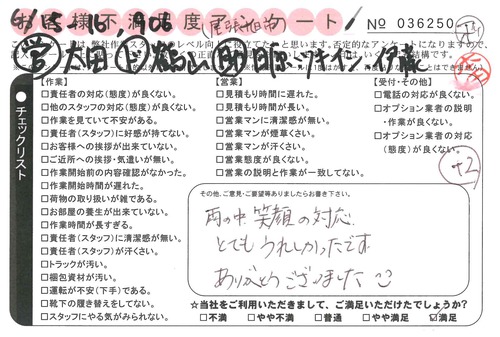 お客様不満足度アンケート
No 036250
【作業】
□責任者の対応(態度)が良くない。
□他のスタッフの対応(態度)が良くない。
□作業を見ていて不安がある。
□責任者(スタッフ)に好感が持てない。
□お客様への挨拶が出来ていない。
□ご近所への挨拶・気遣いが無い。
□作業開始前の内容確認がなかった。
□作業開始時間が遅れた。
□荷物の取り扱いが雑である。
□お部屋の養生が出来ていない。
□作業時間が長すぎる。
□責任者(スタッフ)に清潔感が無い。
□責任者(スタッフ)が汗くさい。
□トラックが汚い。
□梱包資材が汚い。
□運転が不安(下手)である。
□靴下の履き替えをしてない。
□スタッフにやる気がみられない。
【営業】
□見積もり時間に遅れた。
□見積もり時間が長い。
□営業マンに清潔感が無い。
□営業マンが煙草くさい。
□営業マンが汗くさい。
□営業態度が良くない。
□営業の説明と作業が一致してない。
【受付・その他】
□電話の対応が良くない。
□オプション業者の説明
・作業が良くない。
□オプション業者の対応
(態度)が良くない。
+2
●チェックリスト
その他、ご意見・ご要望等ありましたらお書き下さい。
雨の中、笑顔の対応
とてもうれしかったです
ありがとうございました
☆当社をご利用いただきまして、ご満足いただけたでしょうか?
□不満 □やや不満 □普通 □やや満足 ☑満足